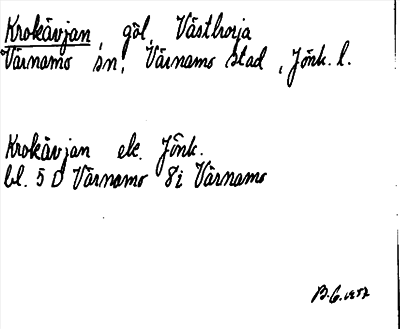 Krokävjan, göl, Västhorja
Värnamo sn, Värnamo stad, Jönk. l.
Krokävjan ek. Jönk.
bl. 5 D Värnamo 8i Värnamo
B.G.